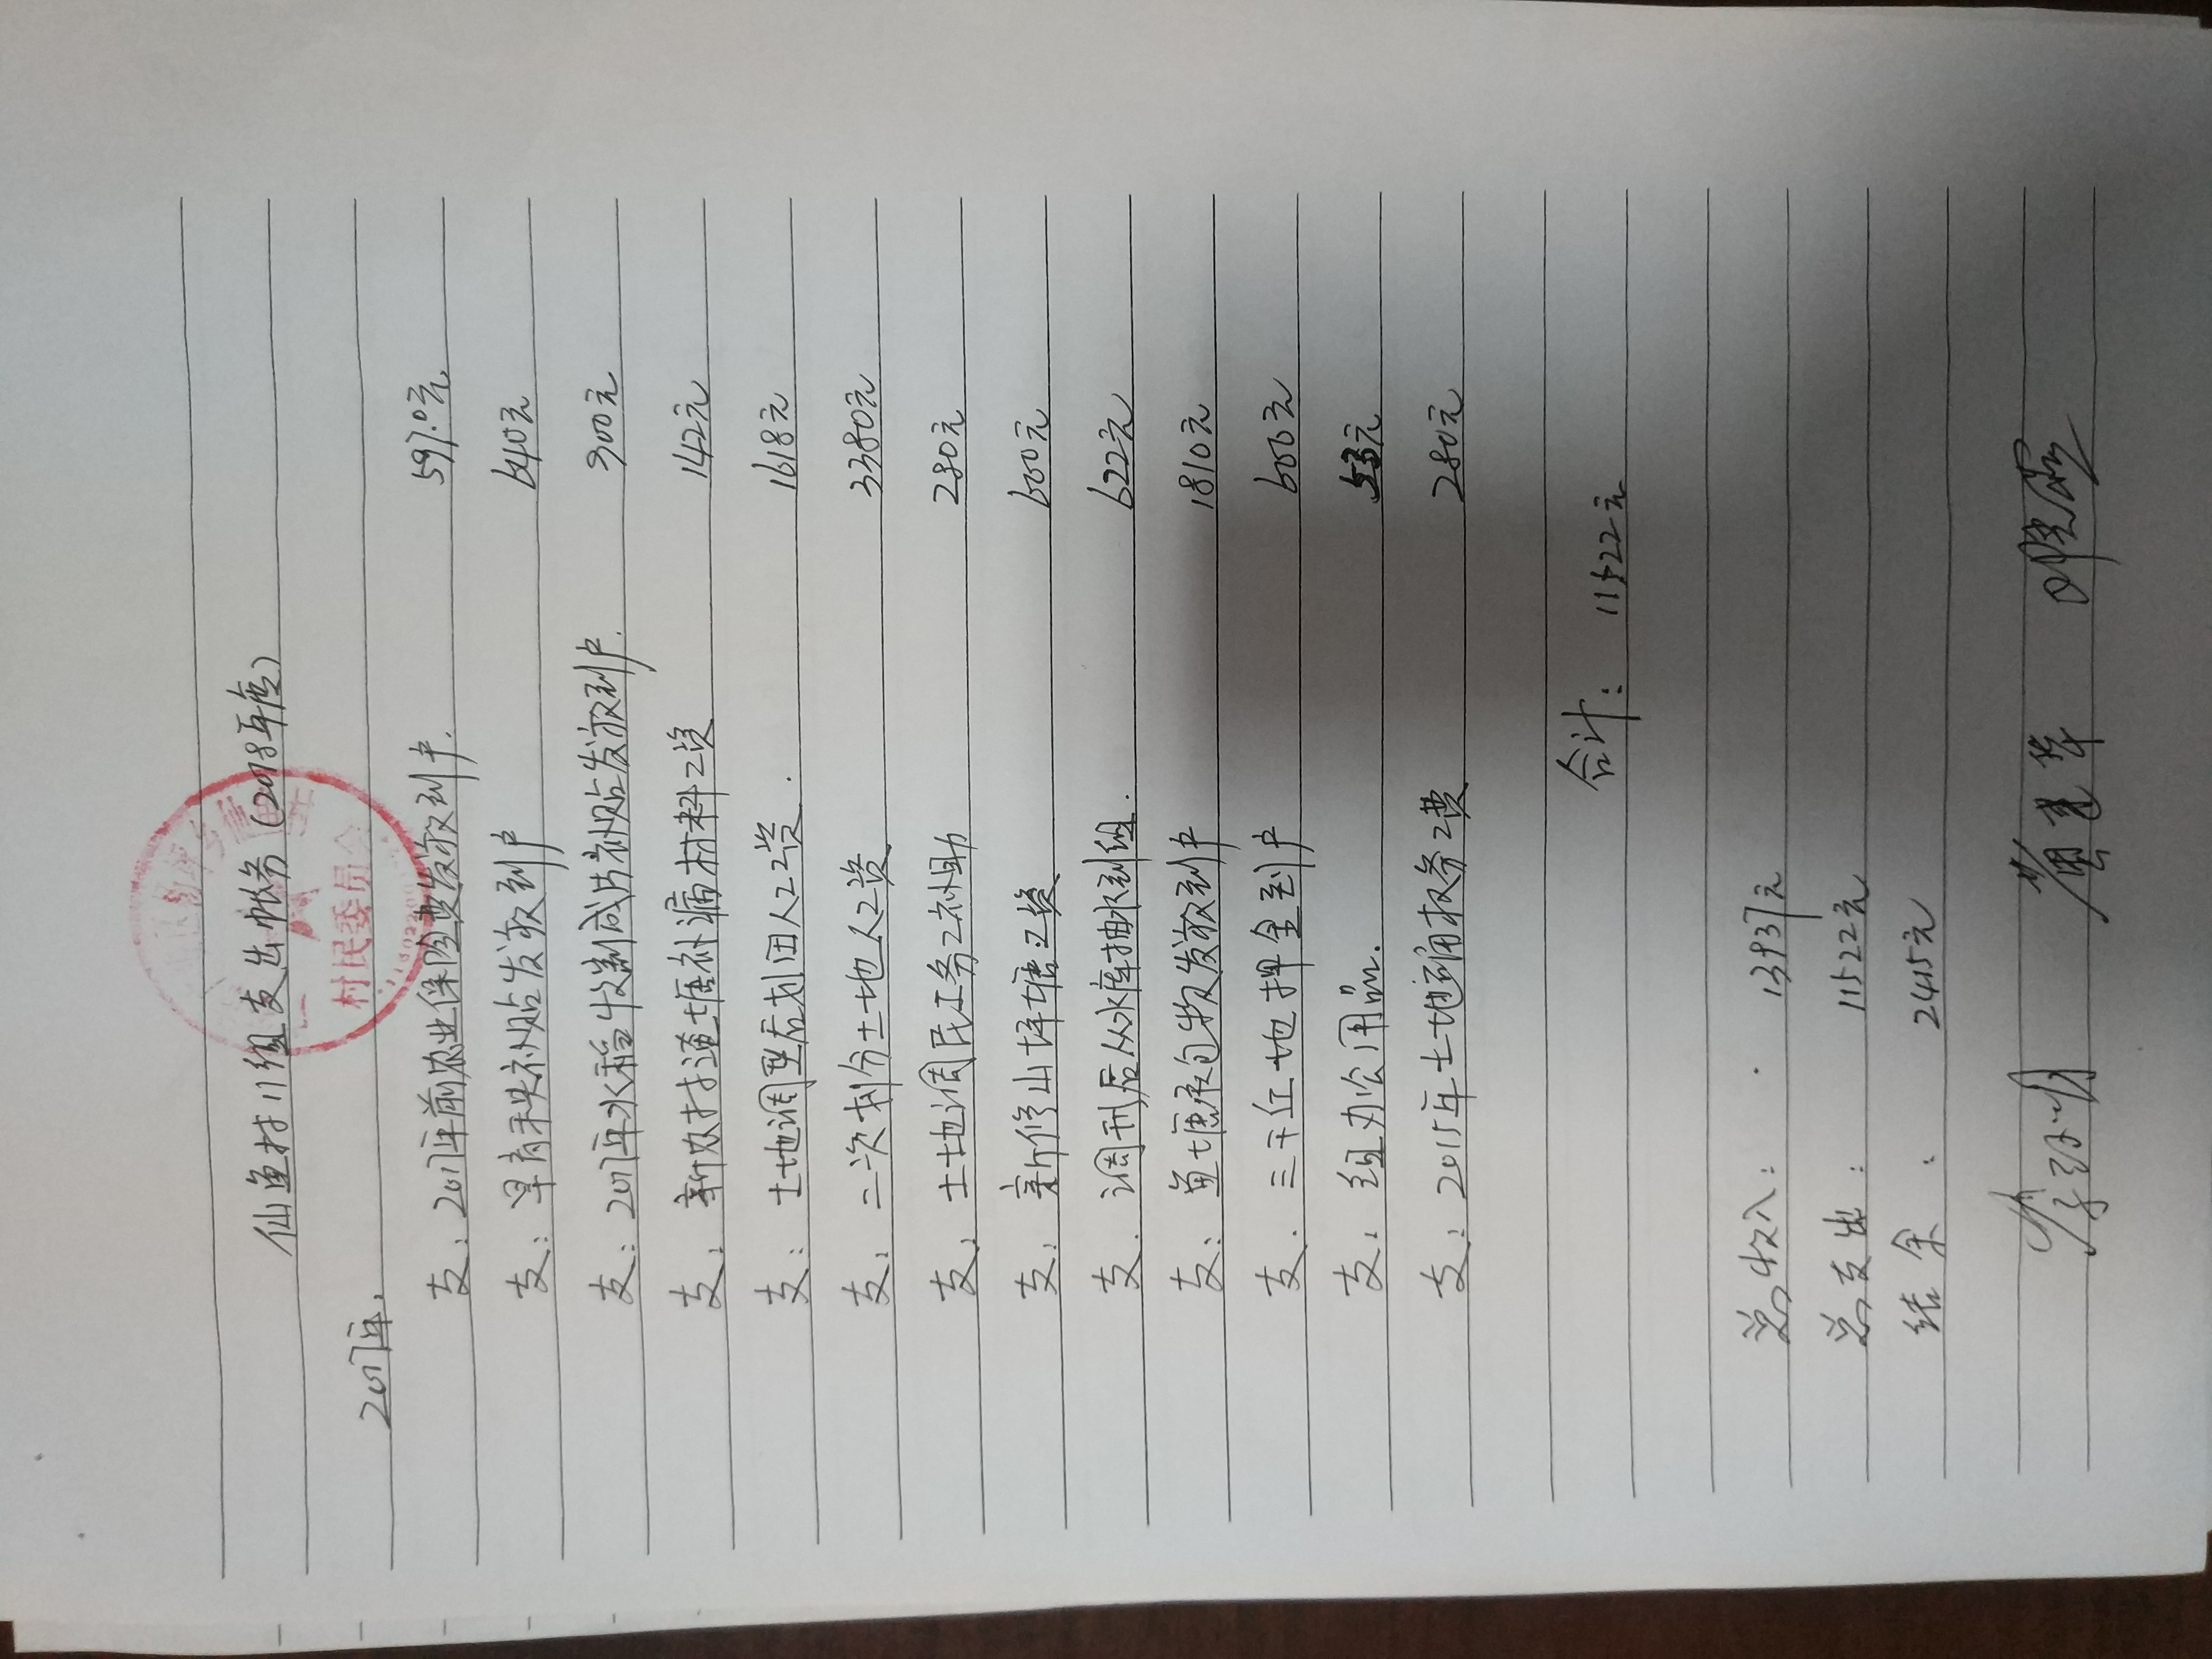 仙鱼村11组支出帐务(2018年度)
村民委员会
2017年:
支:2017年前农业保险费发放到户. 597.0元
支:早育秧补贴发放到户 640元
支:2017年水稻收割成片补贴发放到户. 300元
支:新农村通塘补漏材料工资 142元
支:土地调型后划田人工资. 1618元
支:二次划分土地人工资 3380元
支:土地调民工务工补助 280元
支:新修山坪塘工资 600元
支.调刑后从水库抽水到组. 622元
支:鱼塘承包物发放到户 1810元
支.三千红土地押金到户 600元
支:组办公用品. 53元
支:2015年土地确权务工费 280元
合计:11522元
总收入: 13937元
总支出: 11522元
结余: 2415元